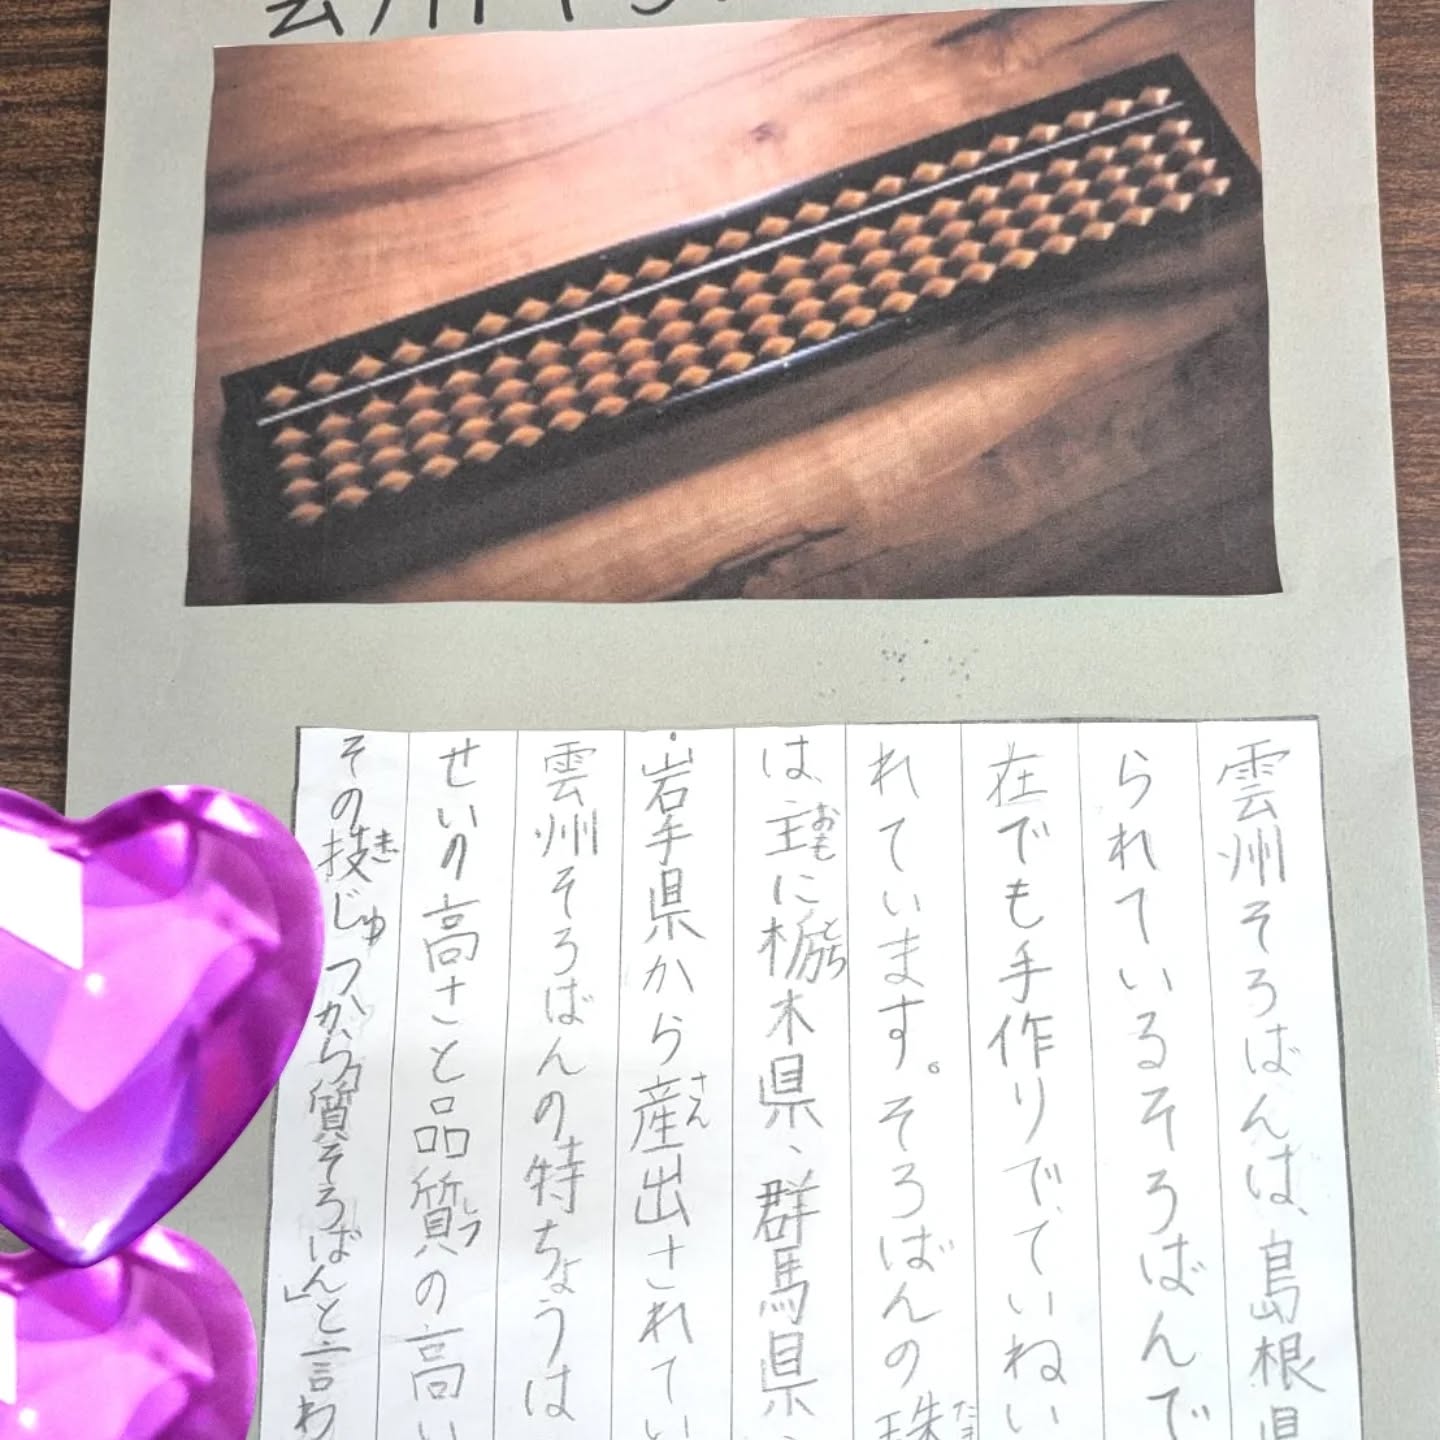 雲州そろばんは、島根県
られているそろばんで
在でも手作りでていねい
れています。そろばんの珠
は、主に栃木県、群馬県、
・岩手県から産出されてい
雲州そろばんの特ちょうは
せいの高さと品質の高い
その技じゅつから「質そろばん」と言わ